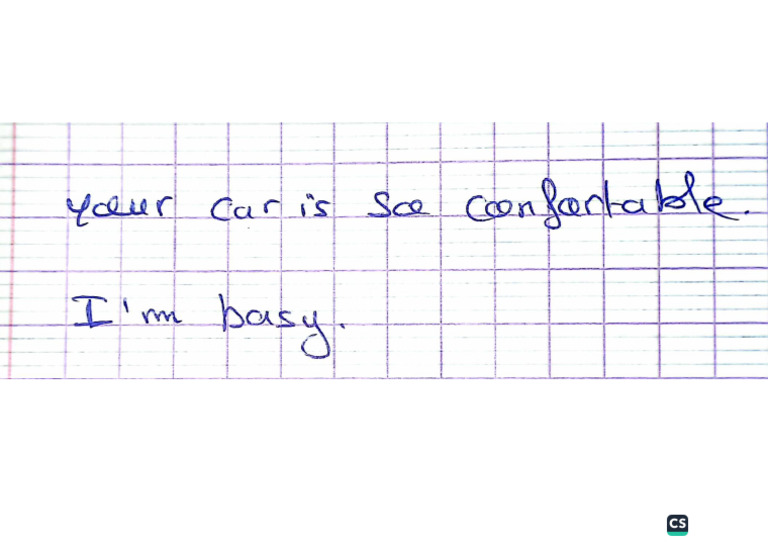 your car is so confortable.
I'm basy.
CS